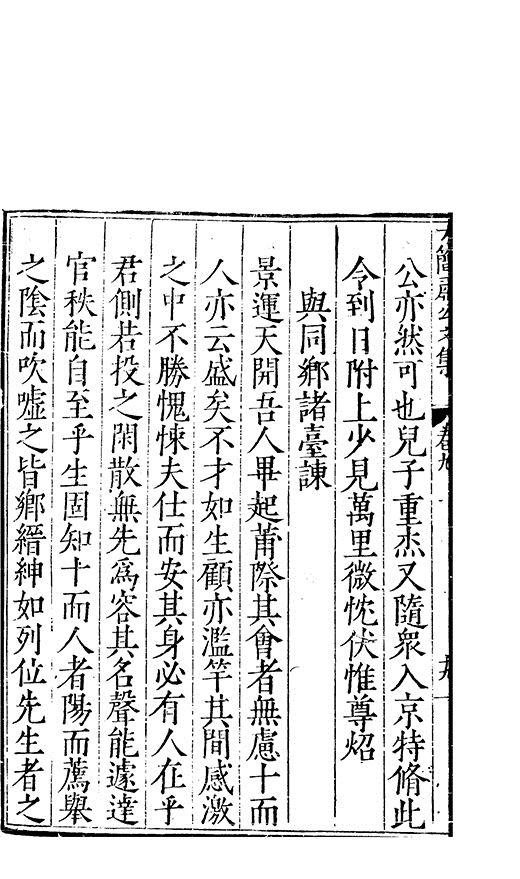 公亦然可也兒子重杰又隨衆入京特脩此
令到日附上少見萬里微忱伏惟尊炤
與同鄉諸臺諫
景運天開吾人畢起莆際其會者無慮十而
人亦云盛矣不才如生顧亦濫竽其間感激
之中不勝愧悚夫仕而安其身必有人在乎
君側若投之閑散無先爲容其名聲能遽達
官秩能自至乎生固知十而人者陽而薦舉
之陰而吹噓之皆鄉縉紳如列位先生者之